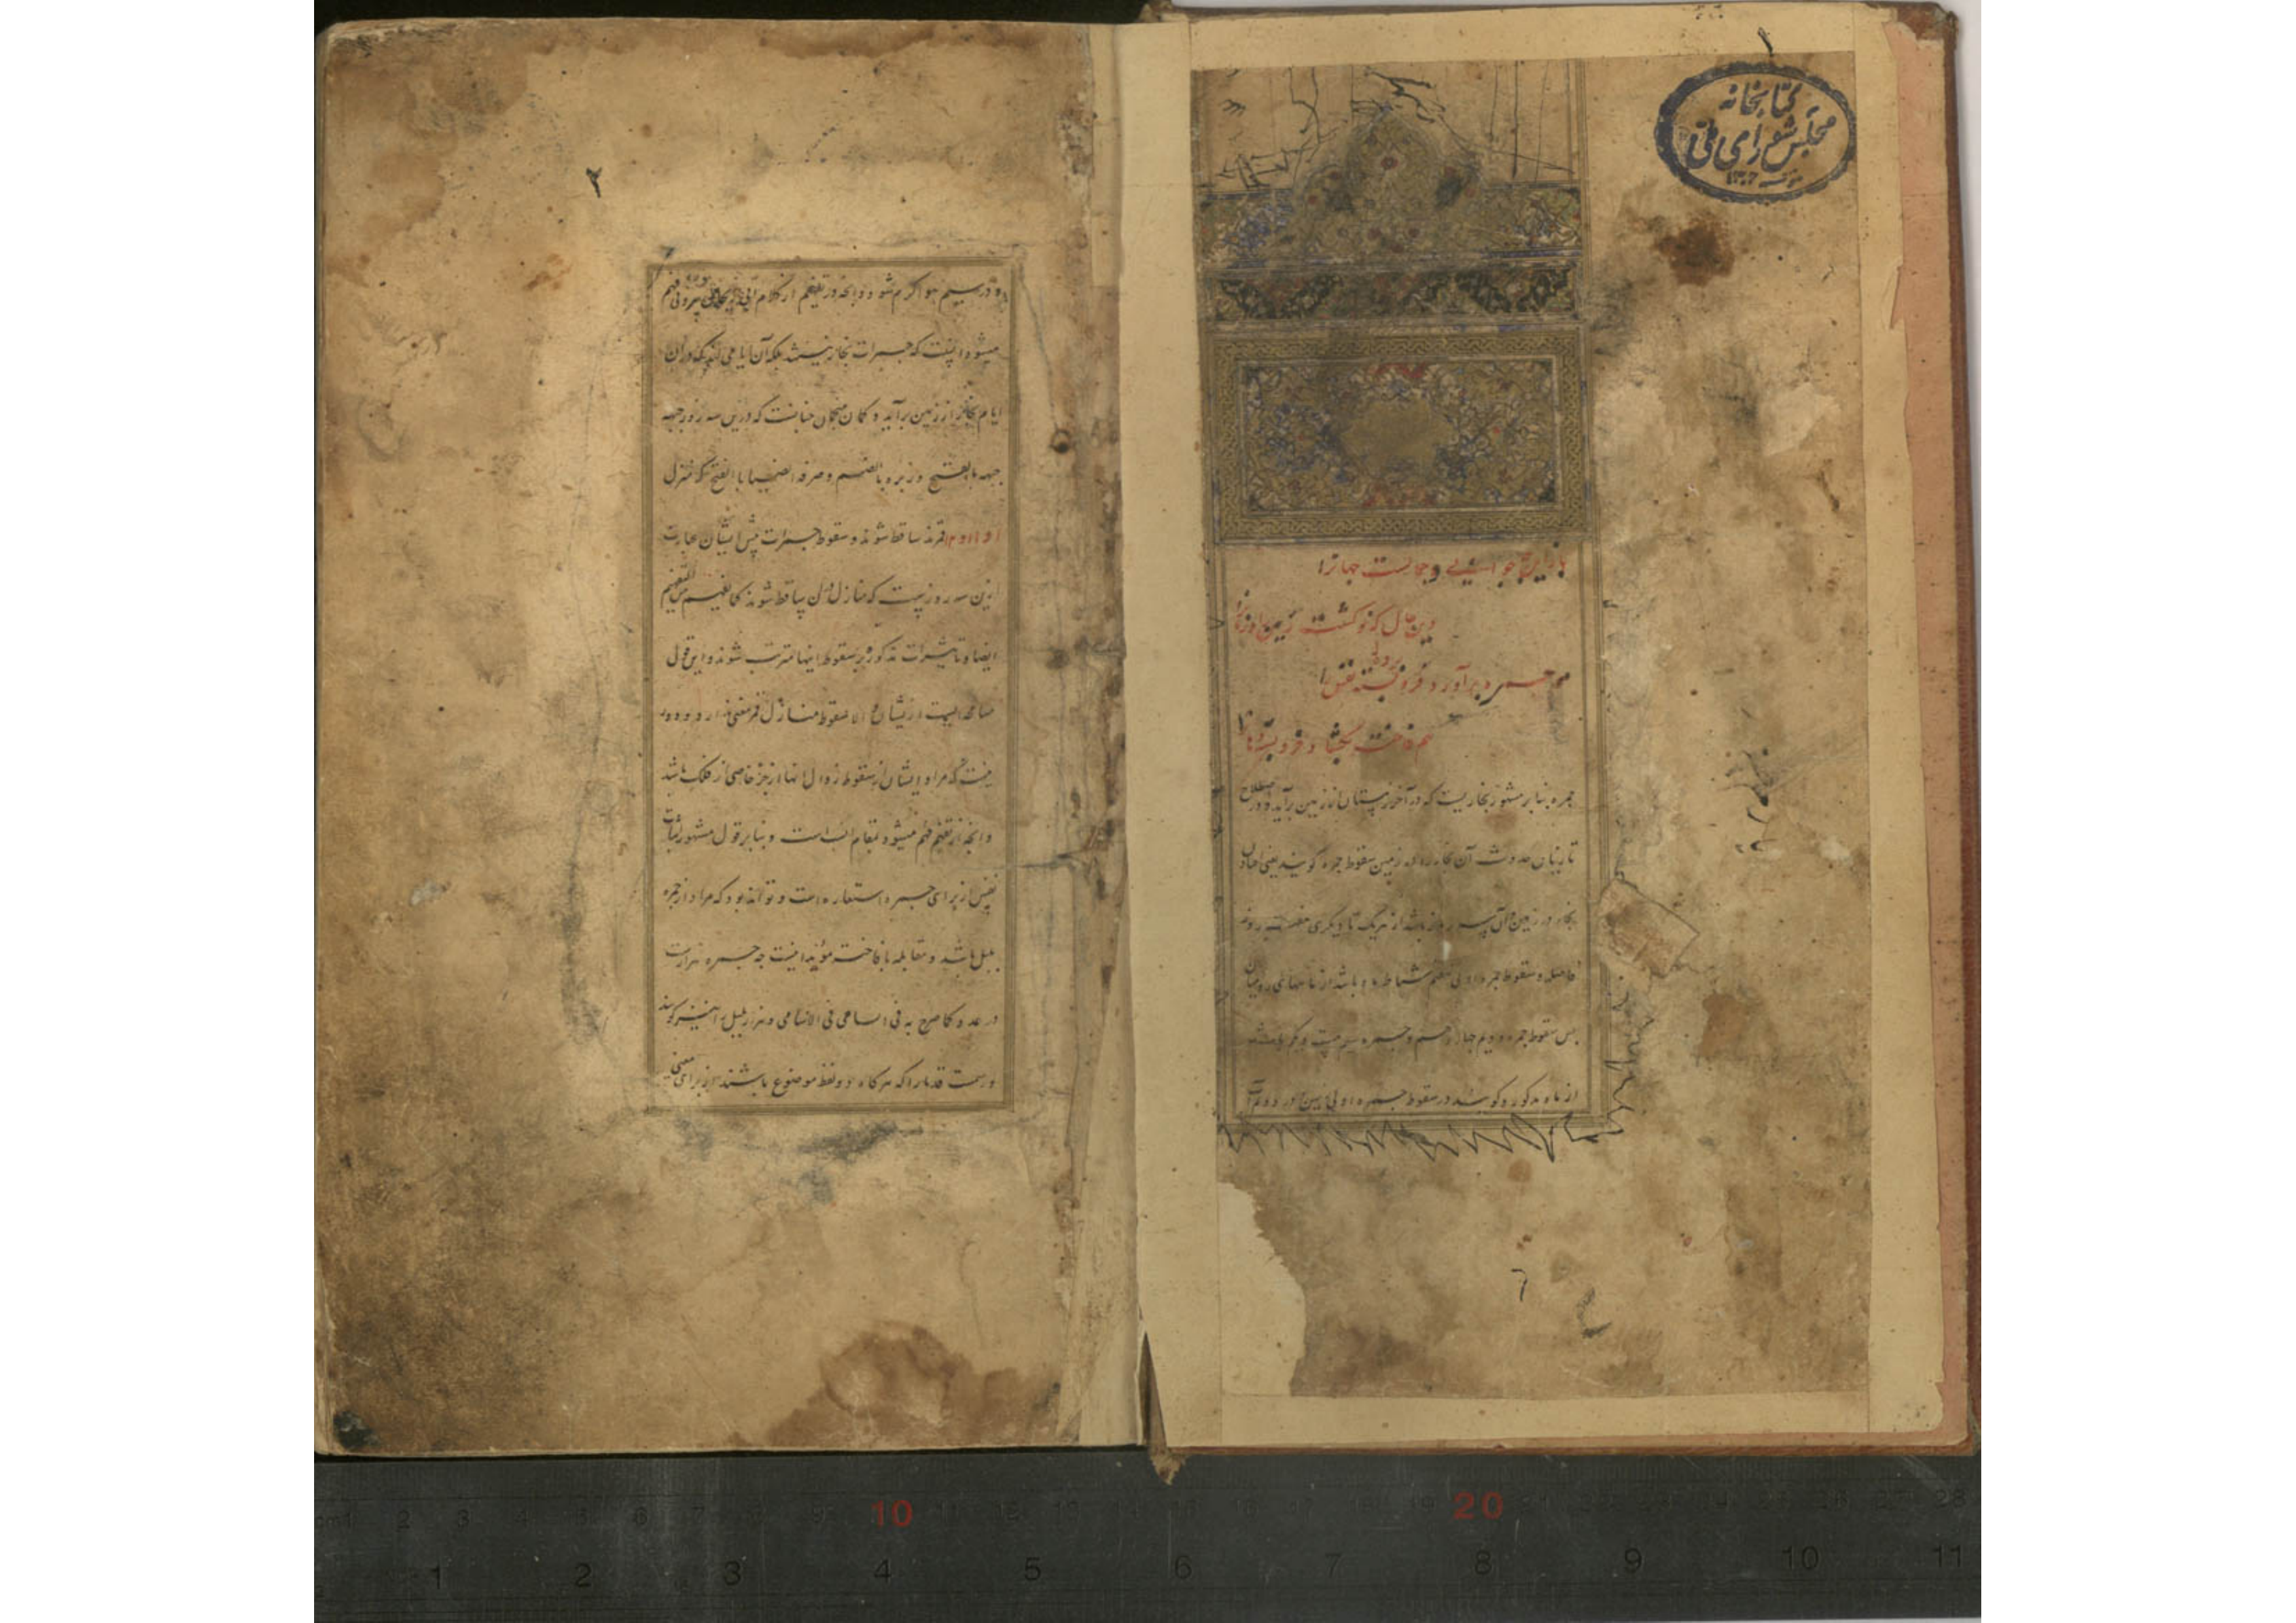 ۱
کتابخانه
مجلس شورای ملی
۱۳۰۲
باز این چه جوانی و جمالست جهانرا
وین حال که نو گشت زمین را و زمانرا
هم جمره برآورد فرو برده نفس را
هم فاخته بگشاد فرو بسته زبانرا
جمره بنابر مشهور بخاریست که در آخر زمستان از زمین برآید و در اصطلاح
حدوث آن بخار را در زمین سقوط جمره گویند یعنی
بخار در زمین و آن سه روز باشد از هر یک تا دیگری هفت روز
فاصله و سقوط جمره اولی هفتم شباط ماه باشد از ماههای رومیان
پس سقوط جمره دویم چهاردهم و جمره سیم بیست و یکم باشد
از ماه مذکور و گویند در سقوط جمره اولی زمین و در دویم آب
۲
و در سیم هوا گرم شود و آنچه در تفهیم از کلام ابی ریحان بیرونی فهم
میشود اینست که جمرات بخار نیستند بلکه آن ایامی اند که در آن
ایام بخار از زمین برآید و گمان منجمان چنانست که درین سه روز جبهه
جبهه بالفتح و زبره بالضم و صرفه ایضا بالفتح که منزل
۱۰ و ۱۱ و ۱۲ قمرند ساقط شوند و سقوط جمرات پیش ایشان عبارت
ازین سه روزیست که منازل در آن ساقط شوند کما یفهم من التفهیم
ایضا و تاثیرات مذکوره بر سقوط اینها مترتب شوند و این قولی
از ایشان و الا سقوط منازل قمر معنی ندارد و دور
نیست که مراد ایشان از سقوط زوال آنها از جزء خاصی از فلک باشد
و آنچه از تفهیم فهم میشود بمقام انسب است و بنابر قول مشهور اثبات
نفس از برای جمره استعاره است و تواند بود که مراد از جمره
بلبل باشد و مقابله با فاخته مؤید اینست چه جمره هزارست
در عدد کما صرح به فی السامی فی الاسامی و هزار بلبل را نیز گویند
و رسمت قدما را که هرگاه دو لفظ موضوع باشند از برای معنی